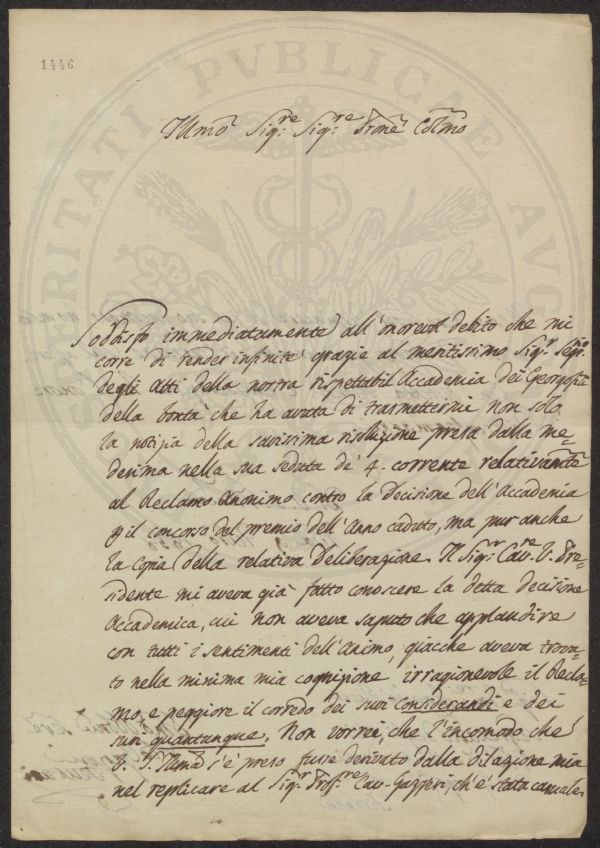 1446
PROSPERITATI PVBLICAE AVGENDAE
Illmo Sig.re Sig.re Prone Colmo
Soddisfo immediatamente all'onorevol debito che mi
corre di render infinite grazie al meritissimo Sig.r Seg.rio
degli Atti della nostra rispettabil Accademia dei Georgofili
della bontà che ha avuta di trasmettermi non solo
la notizia della savissima risoluzione presa dalla me=
desima nella sua seduta de' 4. corrente relativamte
al Reclamo Anonimo contro la Decisione dell'Accademia
il concorso del premio dell'Anno caduto, ma pur anche
la copia della relativa Deliberazione. Il Sig.r Cav.re V. Pre=
sidente mi aveva già fatto conoscere la detta decisione
Accademica, cui non aveva saputo che applaudire
con tutti i sentimenti dell'Animo, giacche aveva trova=
to nella minima mia cognizione irragionevole il Recla=
mo, e peggiore il corredo dei suoi considerandi e dei
suoi quantunque. Non vorrei, che l'incomodo che
V. S. Illma s'è preso fusse derivato dalla dilazione mia
nel replicare al Sig.r Prof.re Cav. Gazzeri, ch'è stata casuale